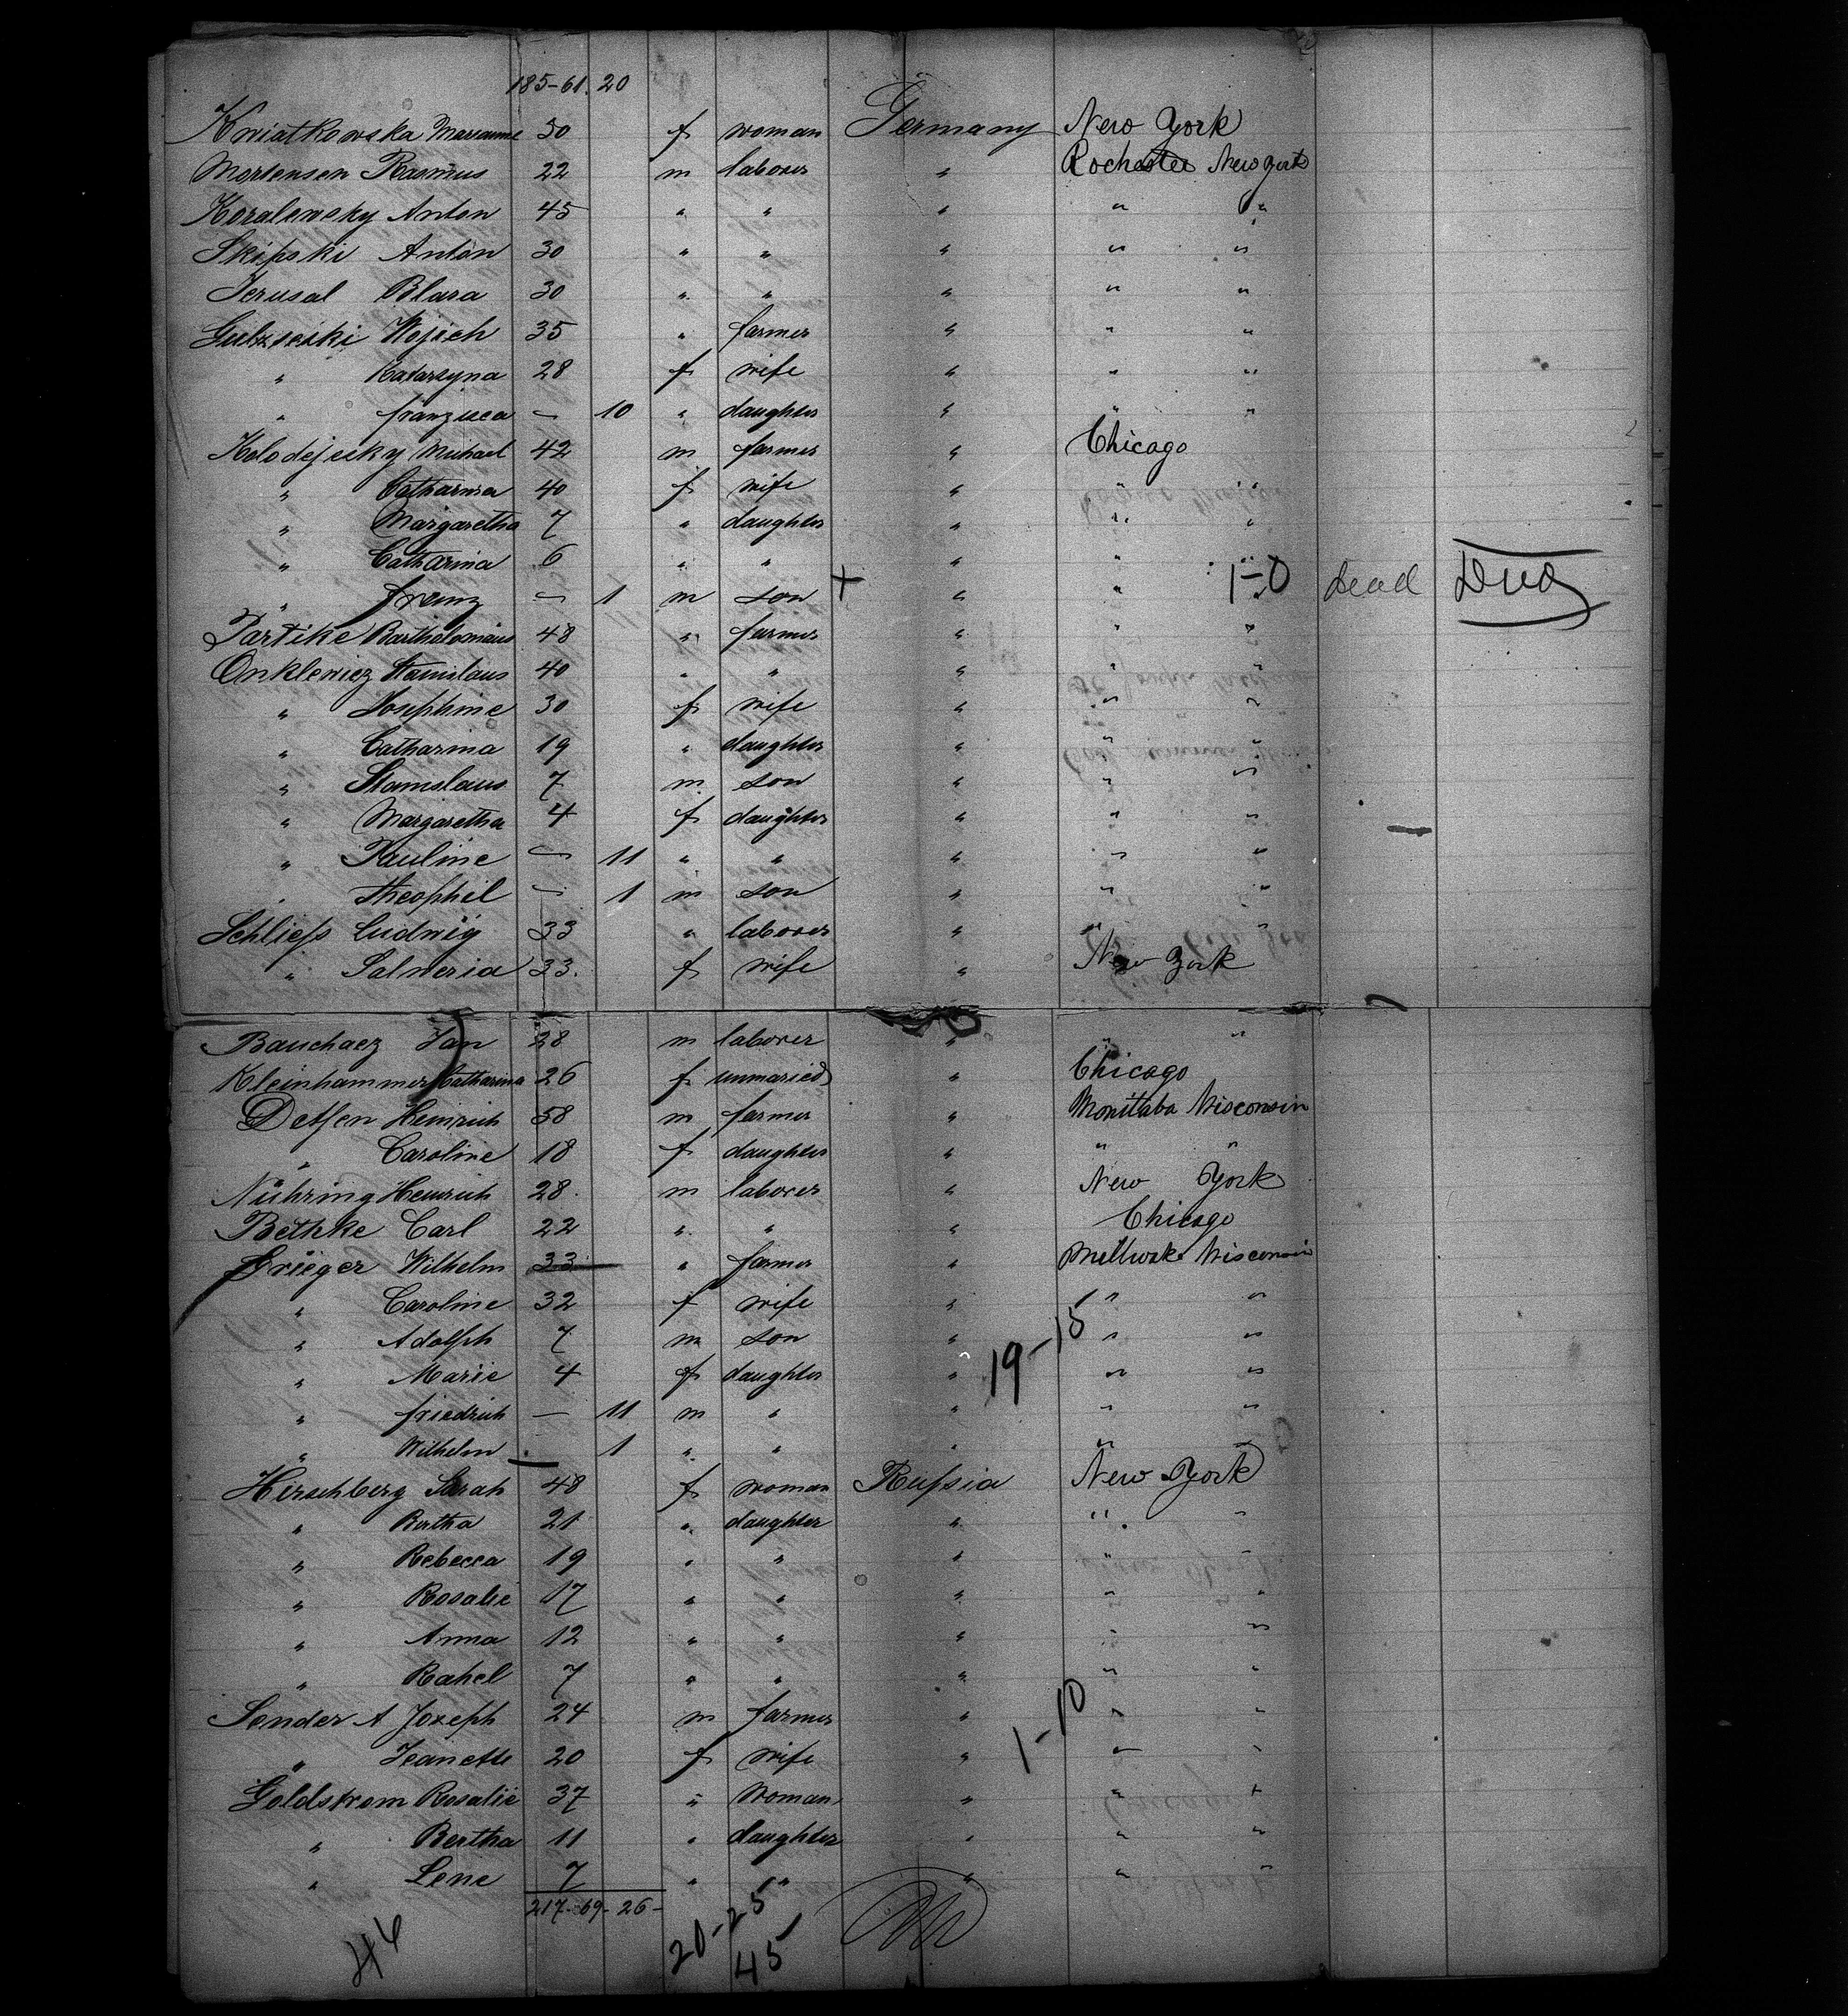 185-61. 20
Kwiatkowska Marianne 30 f woman Germany New York
Mortensen Rasmus 22 m laborer " Rochester New York
Koralewsky Anton 45 " " " " "
Skipski Anton 30 " " " " "
Jerusal Blara 30 " " " " "
Wojich 35 " farmer " " "
" Katarzyna 28 f wife " " "
" franzisca — 10 " daughter " " "
Kolodejecky Michael 42 m farmer " Chicago
" Catharina 40 f wife " " "
" Margaretha 7 " daughter " " "
" Catharina 6 " " " " "
" franz — 1 m son + " " 1-0 dead Died
Partike Bartholomäus 48 " farmer " " "
Onklewicz Stanislaus 40 " " " " "
" Josephine 30 f wife " " "
" Catharina 19 " daughter " " "
" Stanislaus 7 m son " " "
" Margaretha 4 f daughter " " "
" Pauline — 11 " " " " "
" Theophil — 1 m son " " "
Schliess Ludwig 33 " laborer " " "
" Salmeria 33. f wife " New York
Bauchacz Jan 28 m laborer " " "
Kleinhammer Catharina 26 f unmaried " Chicago
Detjen Heinrich 58 m farmer " Monittaba Wisconsin
" Caroline 18 f daughter " " "
Nühring Heinrich 28. m laborer " New York
Bethke Carl 22 " " " Chicago
Krüger Wilhelm 33 " farmer " Millwok Wisconsin
" Caroline 32 f wife " " "
" Adolph 7 m son " " "
19-15
" Marie 4 f daughter " " "
" friedrich — 11 m " " " "
" Wilhelm — 1 " " " " "
Hirschberg Sarah 48 f woman Russia New York
" Bertha 21 " daughter " " "
" Rebecca 19 " " " " "
" Rosalie 17 " " " " "
" Anna 12 " " " " "
" Rahel 7 " " " " "
Sender A Joseph 24 m farmer " " "
1-10
" Jeanette 20 f wife " " "
Goldstrom Rosalie 37 " woman " " "
" Bertha 11 " daughter " " "
" Lene 7 " " " " "
217-69-26-
20-25
46 45